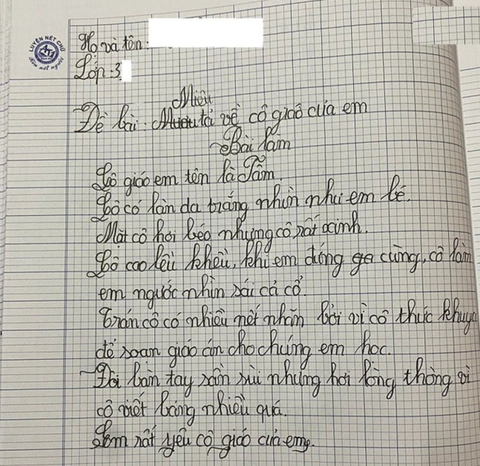 LUYỆN NÉT CHỮ
Rèn nết người
Họ và tên:
Lớp: 3
Miêu
Đề bài: tả về cô giáo của em
Bài làm
Cô giáo em tên là Tâm.
Cô có làn da trắng nhìn như em bé.
Mặt cô hơi béo nhưng cô rất xinh.
Cô cao lêu khêu, khi em đứng gc cùng, cô làm
em ngước nhìn sái cả cổ.
Trán cô có nhiều nết nhăn bởi vì cô thức khuya
để soạn giáo án cho chúng em học.
Đôi bàn tay sần sùi nhưng hơi lòng thòng vì
cô viết bảng nhiều quá.
Em rất yêu cô giáo của em.